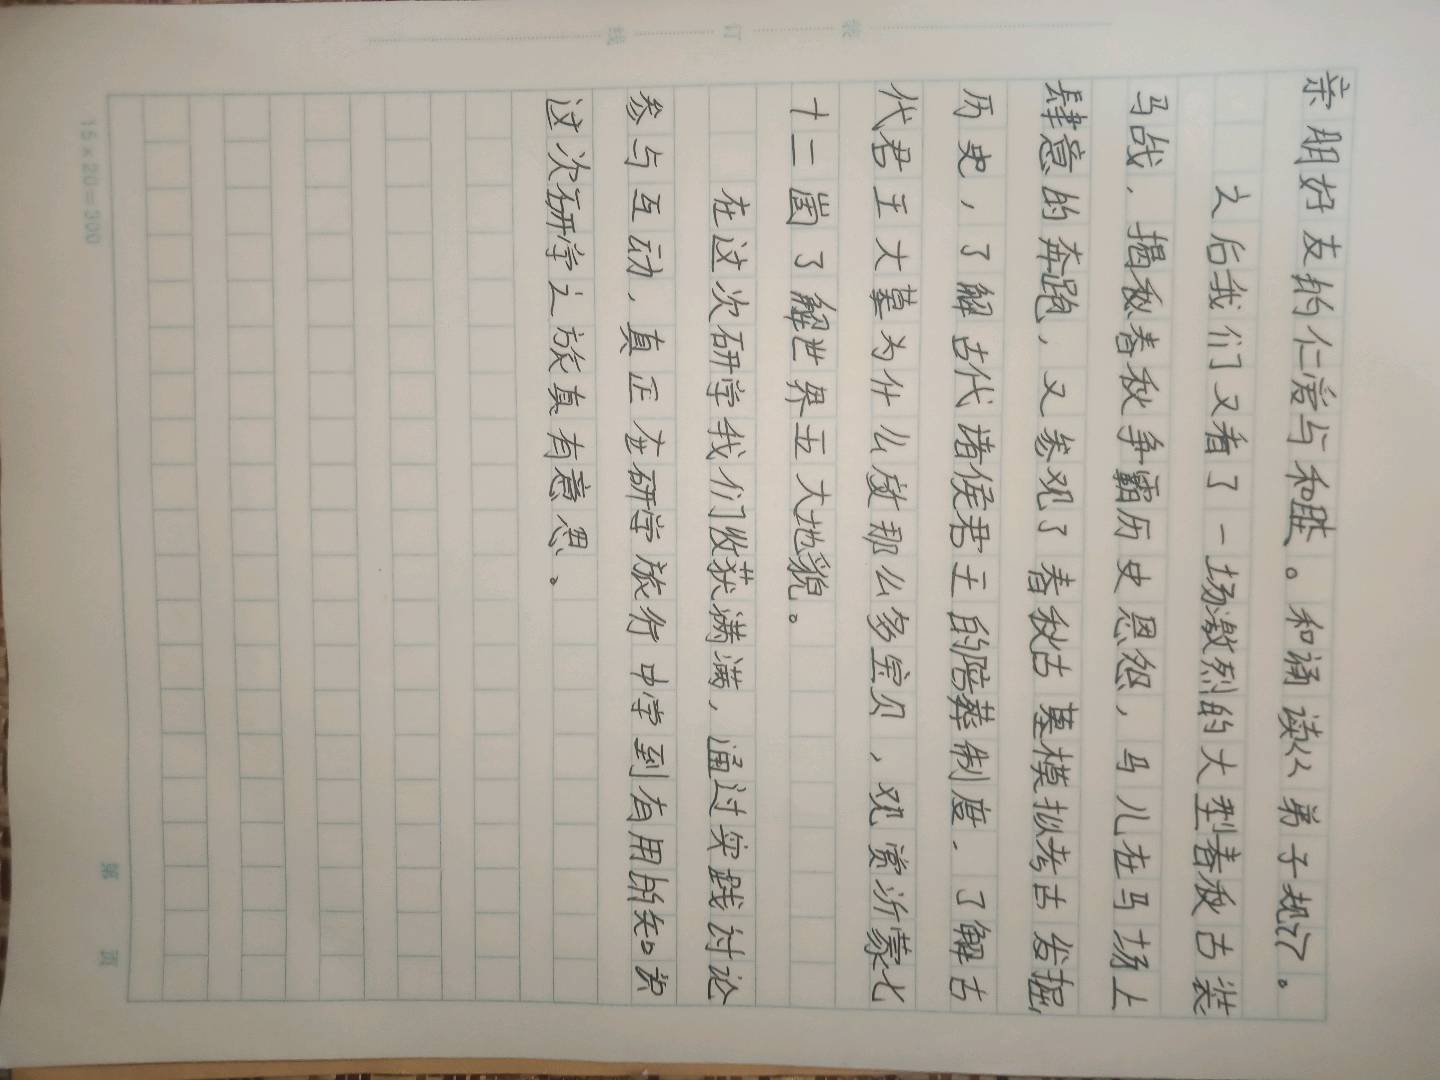 装 订 线
亲朋好友的仁爱与和睦。和诵读《弟子规》。
之后我们又看了一场激烈的大型春秋古装
马战，揭秘春秋争霸历史恩怨，马儿在马场上
肆意的奔跑，又参观了春秋古墓模拟考古发掘
历史，了解古代诸侯君王的陪葬制度。了解古
代君王大墓为什么放那么多宝贝，观赏沂蒙七
十二崮了解世界五大地貌。
在这次研学我们收获满满，通过实践讨论
参与互动，真正在研学旅行中学到有用的知识
这次研学之旅真有意思。
15×20=300
第 页